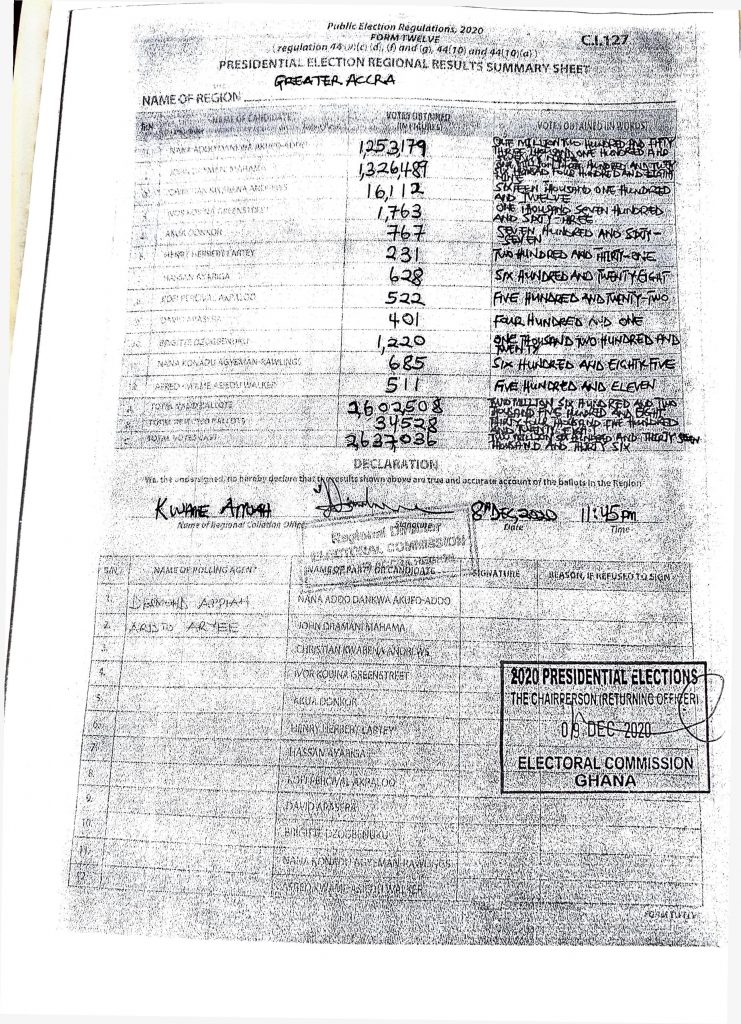 Public Election Regulations, 2020
FORM TWELVE
C.I.127
(regulation 44 (9)(c) (d), (f) and (g), 44(10) and 44(10)(a))
PRESIDENTIAL ELECTION REGIONAL RESULTS SUMMARY SHEET
GREATER ACCRA
NAME OF REGION
S/N NAME OF CANDIDATE VOTES OBTAINED (IN FIGURES) VOTES OBTAINED (IN WORDS)
1,253,179 ONE MILLION TWO HUNDRED AND FIFTY
THREE THOUSAND ONE HUNDRED AND
MAHAMA 1,326,489
16,112 SIXTEEN THOUSAND ONE HUNDRED
AND TWELVE
IVOR KOBINA GREENSTREET 1,763 ONE THOUSAND SEVEN HUNDRED
AND SIXTY-THREE
AKUA DONKOR 767 SEVEN HUNDRED AND SIXTY-
SEVEN
HENRY HERBERT LARTEY 231 TWO HUNDRED AND THIRTY-ONE
HASSAN AYARIGA 628 SIX HUNDRED AND TWENTY EIGHT
KOFI PERCIVAL AKPALOO 522 FIVE HUNDRED AND TWENTY-TWO
DAVID APASERA 401 FOUR HUNDRED AND ONE
BRIGITTE DZOGBENUKU 1,220 ONE THOUSAND TWO HUNDRED AND
TWENTY
NANA KONADU AGYEMAN-RAWLINGS 685 SIX HUNDRED AND EIGHTY-FIVE
ALFRED KWAME ASIEDU WALKER 511 FIVE HUNDRED AND ELEVEN
TOTAL VALID BALLOTS 2,602,508 TWO MILLION SIX HUNDRED AND TWO
THOUSAND FIVE HUNDRED AND EIGHT
TOTAL REJECTED BALLOTS 34528 THIRTY FOUR THOUSAND FIVE HUNDRED
AND TWENTY EIGHT
TOTAL VOTES CAST 2,637,036 TWO MILLION SIX HUNDRED AND THIRTY SEVEN
THOUSAND AND THIRTY SIX
DECLARATION
We, the undersigned, do hereby declare that the results shown above are true and accurate account of the ballots in the Region
KWAME AMOAH 8TH DEC, 2020 11:45pm
Name of Regional Collation Officer Signature Date Time
Regional Director
ELECTORAL COMMISSION
S/N NAME OF POLLING AGENT NAME OF PARTY OR CANDIDATE SIGNATURE REASON, IF REFUSED TO SIGN
1. DESMOND APPIAH NANA ADDO DANKWA AKUFO-ADDO
2. ARISTO ARYEE JOHN DRAMANI MAHAMA
3. CHRISTIAN KWABENA ANDREWS
4. IVOR KOBINA GREENSTREET
5. AKUA DONKOR
6. HENRY HERBERT LARTEY
7. HASSAN AYARIGA
8. KOFI PERCIVAL AKPALOO
9. DAVID APASERA
10. BRIGITTE DZOGBENUKU
11. NANA KONADU AGYEMAN-RAWLINGS
12. ALFRED KWAME ASIEDU WALKER
2020 PRESIDENTIAL ELECTIONS
THE CHAIRPERSON (RETURNING OFFICER)
09 DEC 2020
ELECTORAL COMMISSION
GHANA
FORM TWELVE